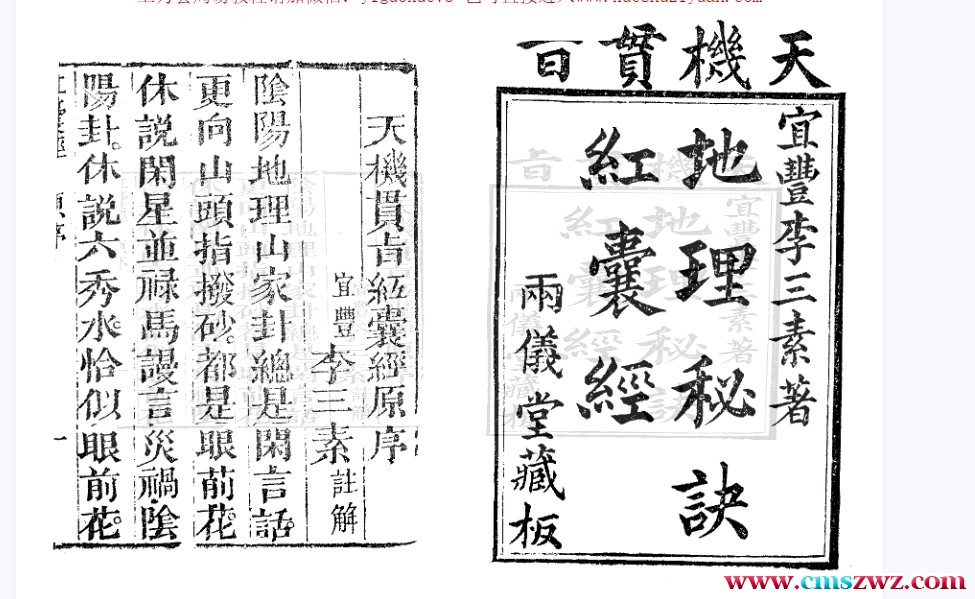 天機貫旨
宜豐李三素著
地理秘訣
紅囊經
兩儀堂藏板
天機貫旨紅囊經原序
宜豐李三素註解
陰陽地理山家卦總是閑言話
更向山頭指撥砂。都是眼前花。
休説閑星並祿馬謾言災禍陰
陽卦。休説六秀水。恰似眼前花。
一
www.cmszwz.com